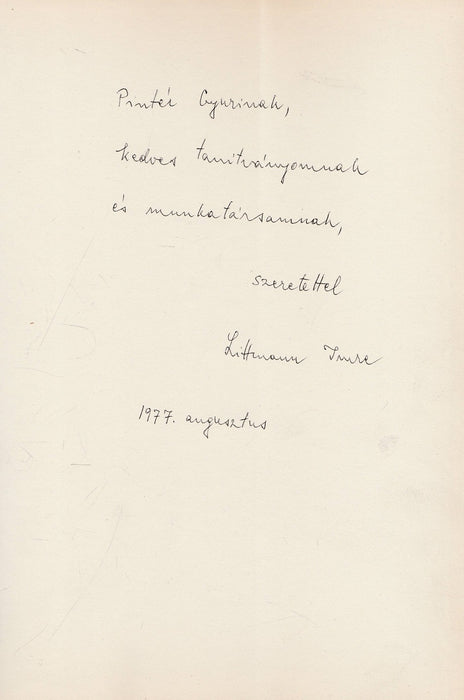 Pintér Gyurinak,
kedves tanítványomnak
és munkatársamnak,
szeretettel
Littmann Imre
1977. augusztus